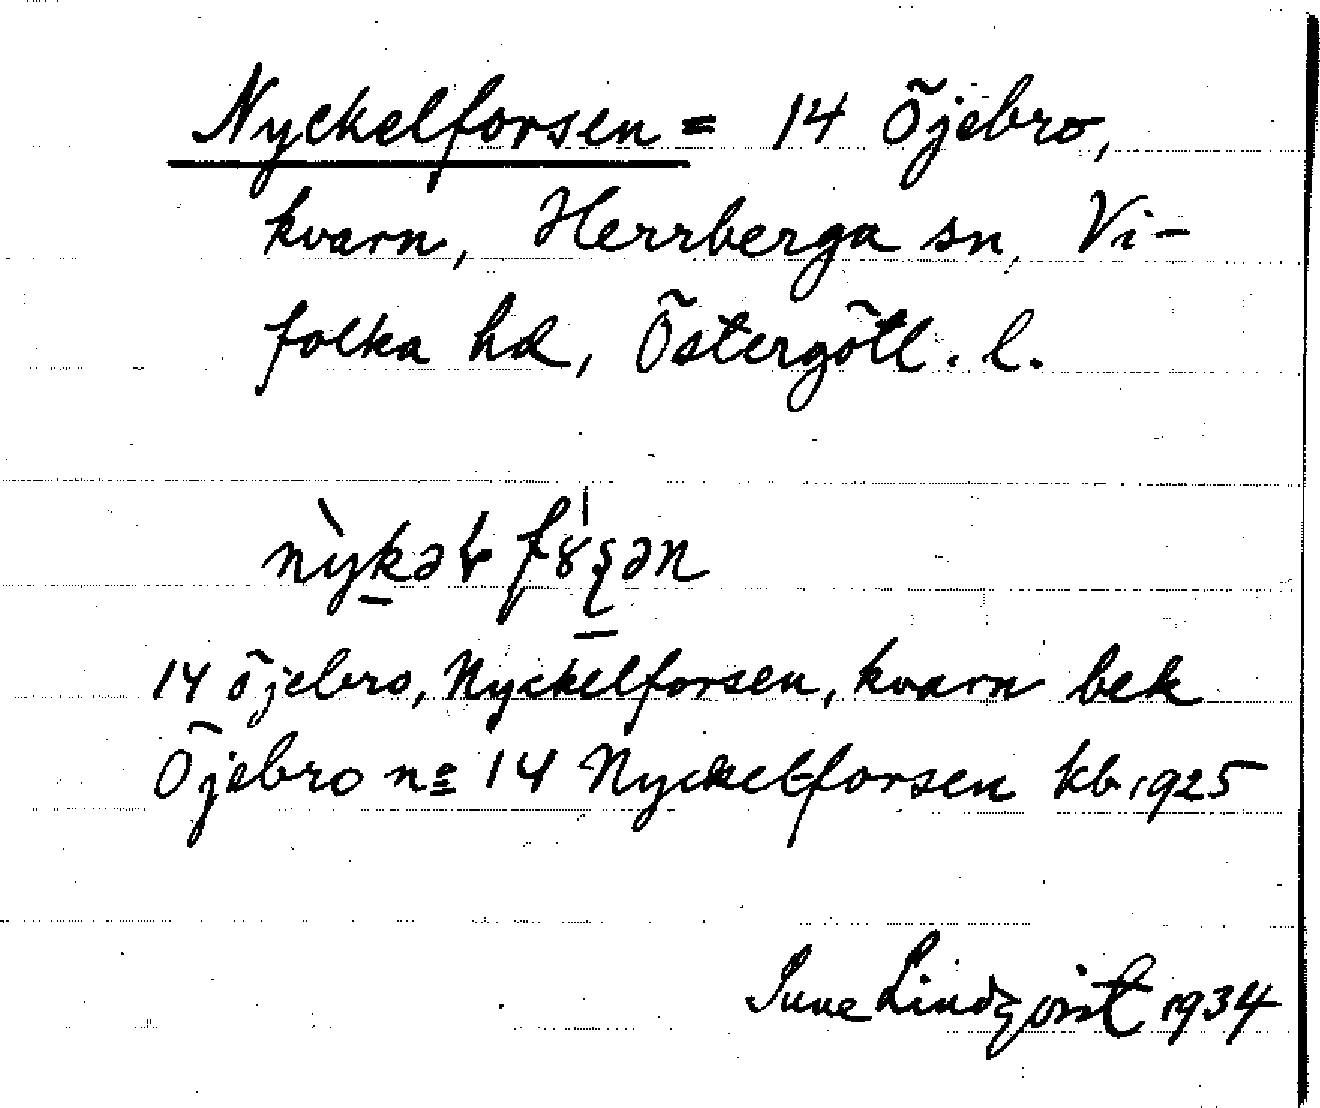 Nyckelforsen = 14 Öjebro,
kvarn, Herrberga sn, Vi-
folka hd, Östergötl. l.
14 Öjebro, Nyckelforsen, kvarn bek
Öjebro nº 14 Nyckelforsen kb 1925
Sune Lindqvist 1934